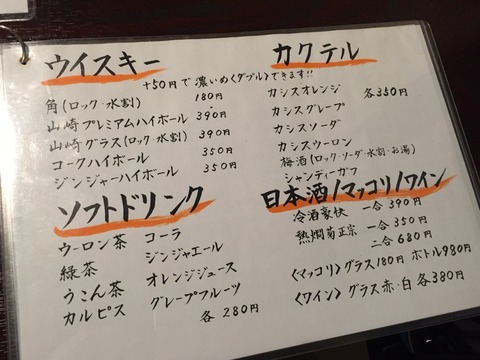 ウイスキー
+50円で濃いめ(ダブル)できます!!
角(ロック・水割) 180円
山崎プレミアムハイボール 390円
山崎グラス(ロック・水割) 390円
コークハイボール 350円
ジンジャーハイボール 350円
ソフトドリンク
ウーロン茶 コーラ
緑茶 ジンジャエール
うこん茶 オレンジジュース
カルピス グレープフルーツ
各280円
カクテル
カシスオレンジ 各350円
カシスグレープ
カシスソーダ
カシスウーロン
梅酒(ロック・ソーダ・水割・お湯)
シャンディーガフ
日本酒/マッコリ/ワイン
冷酒豪快 一合 390円
熱燗菊正宗 一合 350円
二合 680円
<マッコリ>グラス180円 ボトル980円
<ワイン>グラス赤・白 各380円